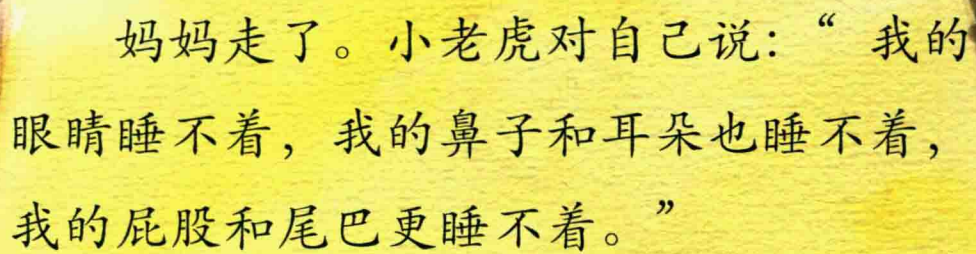 妈妈走了。小老虎对自己说：“我的
眼睛睡不着，我的鼻子和耳朵也睡不着，
我的屁股和尾巴更睡不着。”